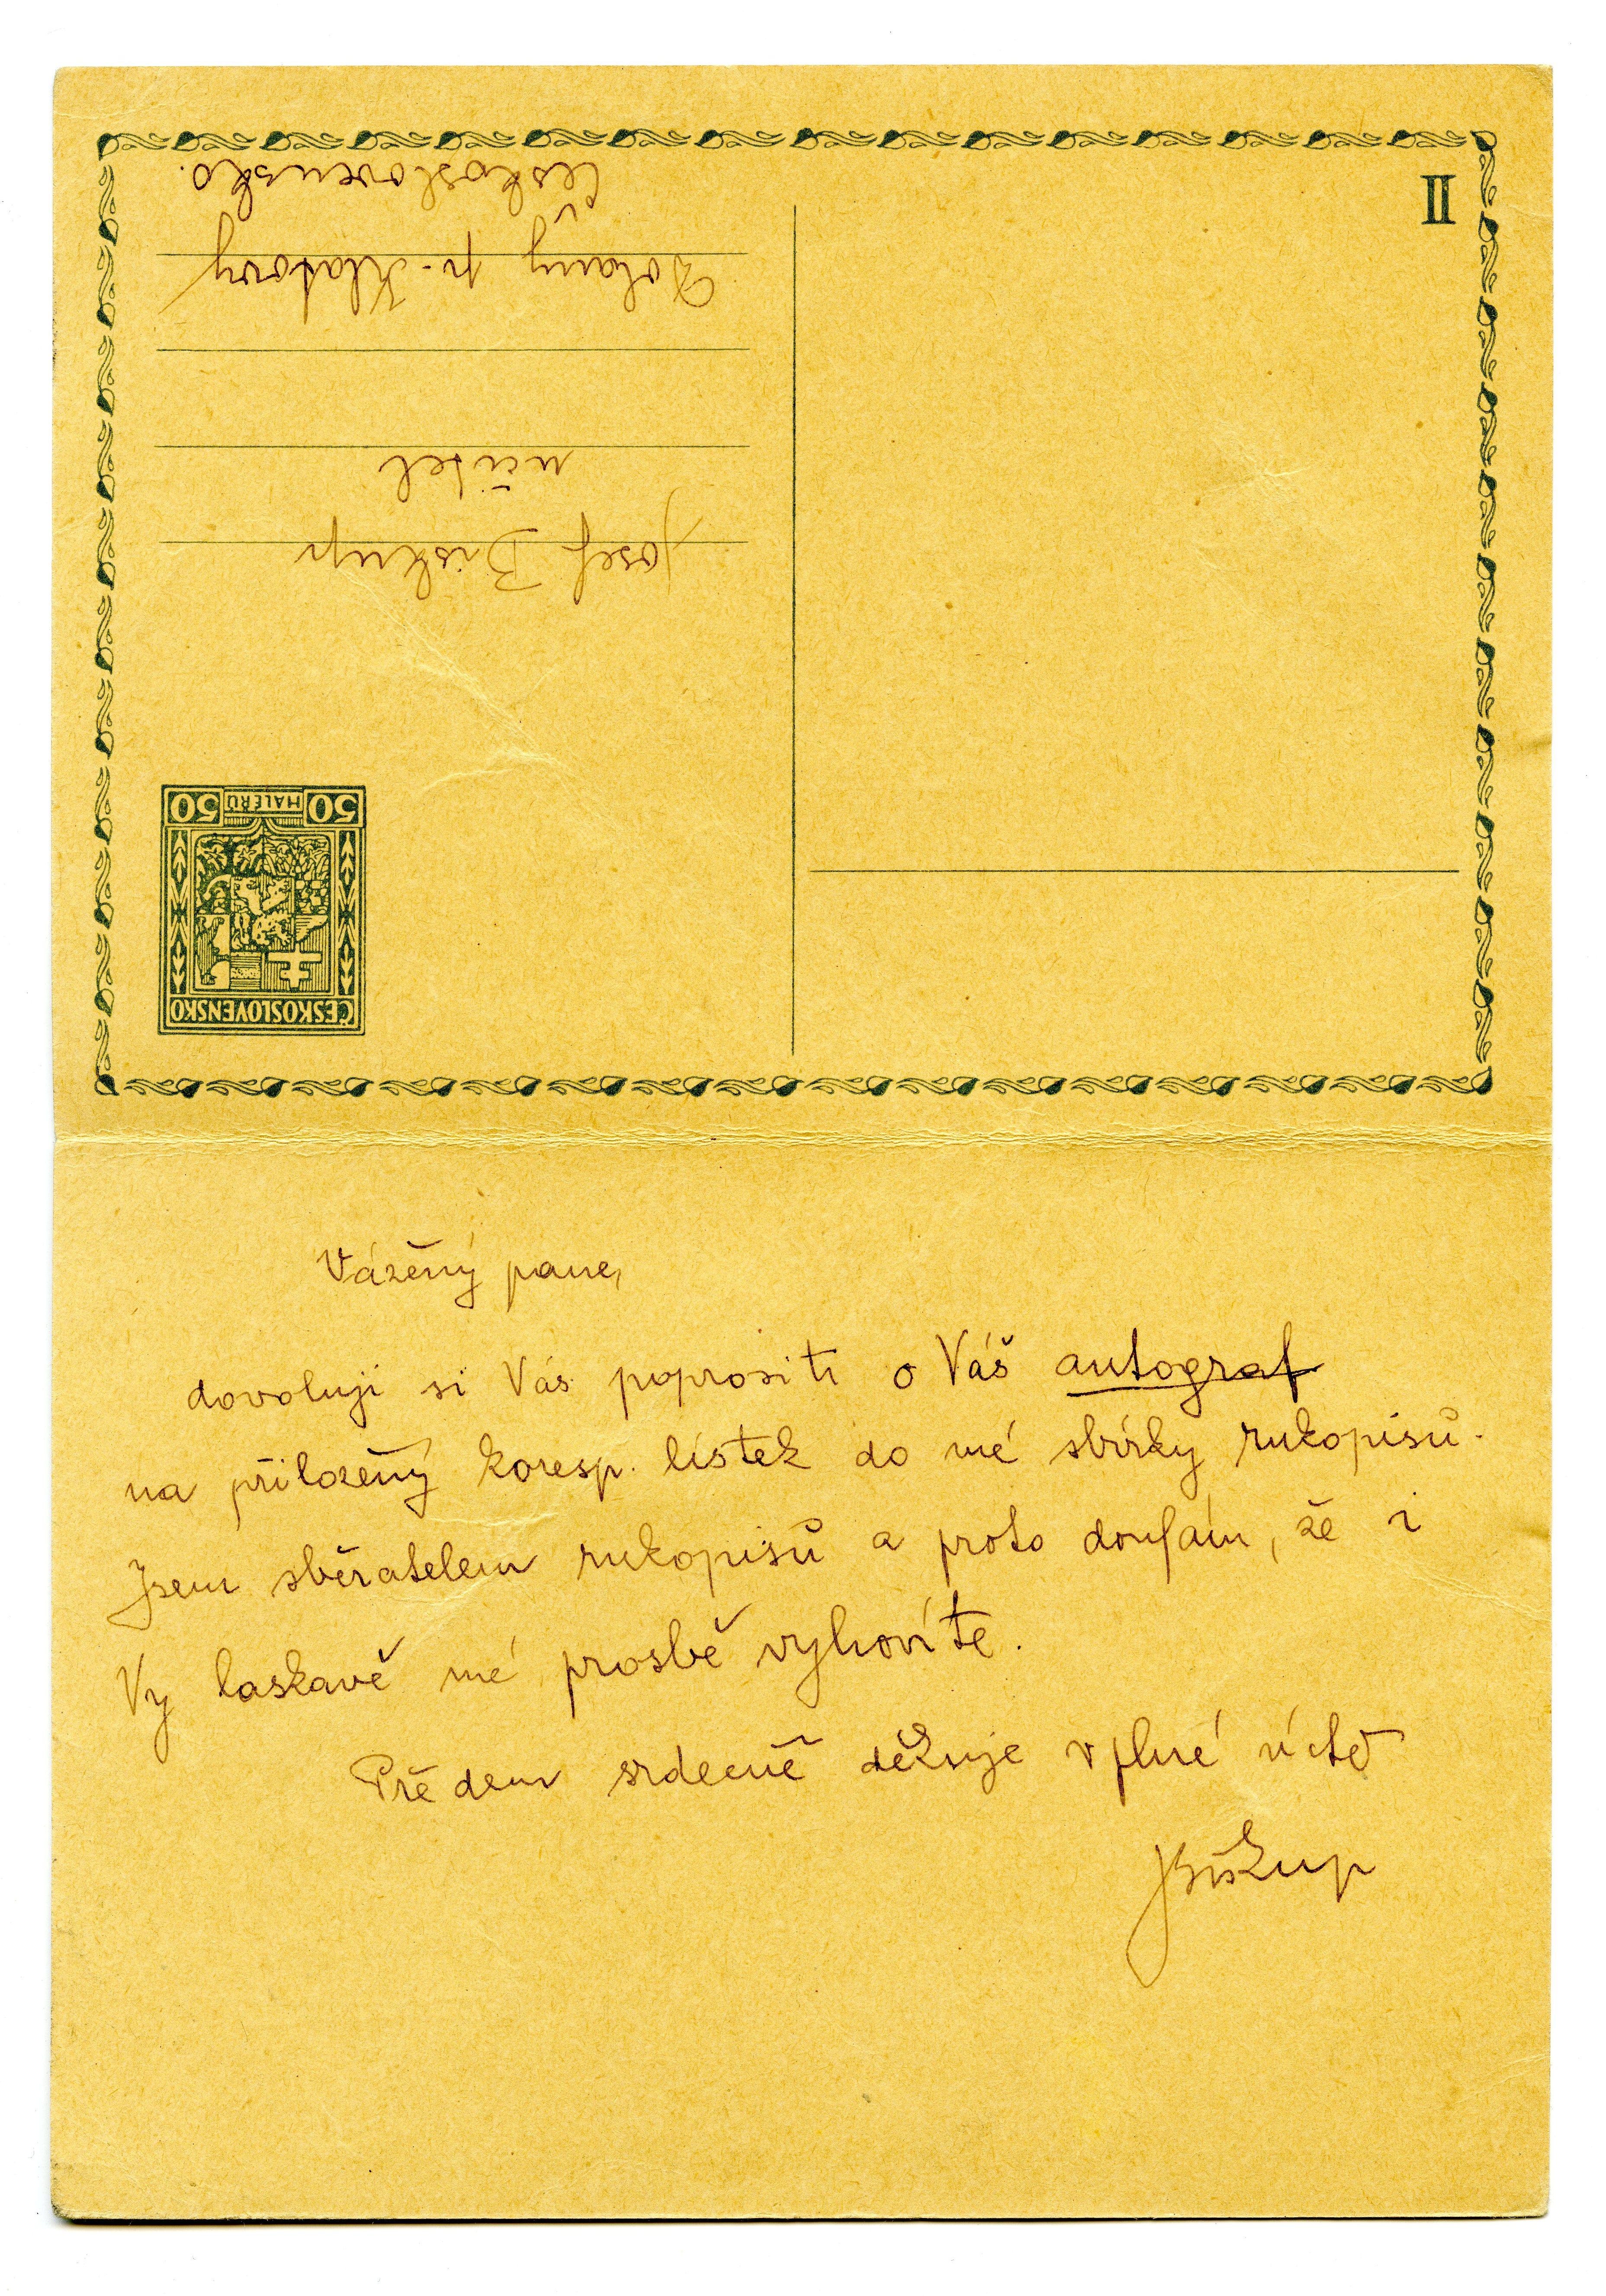 II
Josef Biskup
učitel
Dolany p. Klatovy
Československo.
ČESKOSLOVENSKO
50 HALÉŘŮ 50
Vážený pane,
dovoluji si Vás poprositi o Váš autograf
na přiložený koresp. lístek do mé sbírky rukopisů.
Jsem sběratelem rukopisů a proto doufám, že i
Vy laskavě mé prosbě vyhovíte.
Předem srdečně děkuje v plné úctě
JBiskup